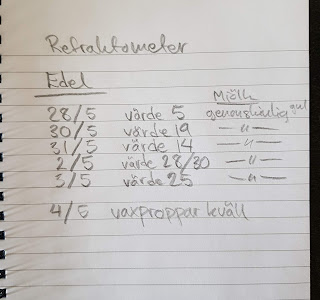 Refraktometer
Edel
Mjölk
28/5 värde 5 genomskinlig gul
30/5 värde 19 —〃—
31/5 värde 14 —〃—
2/5 värde 28/30 —〃—
3/5 värde 25 —〃—
4/5 vaxproppar kväll